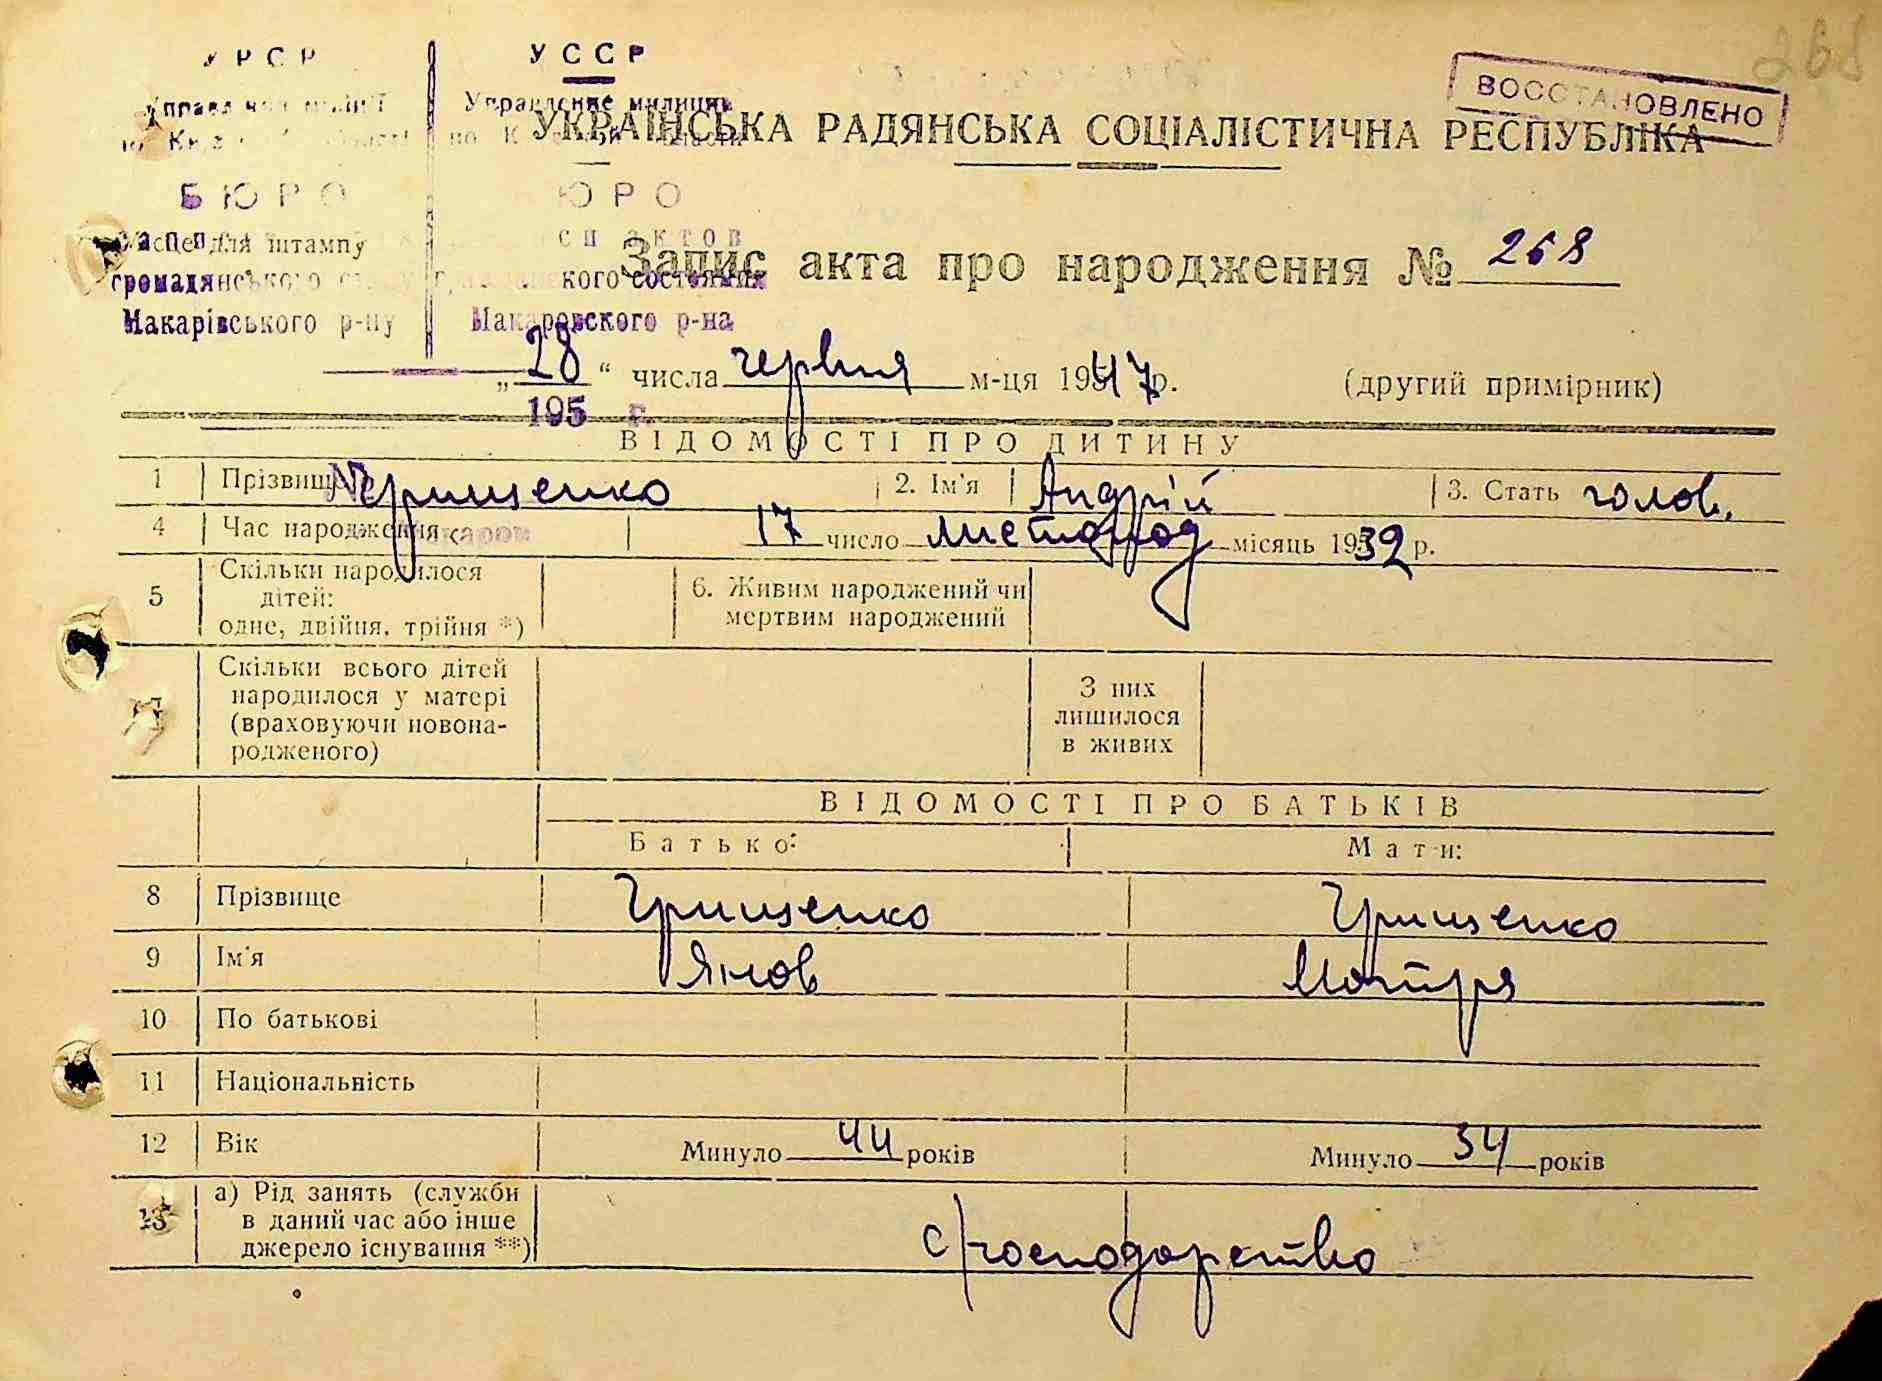 268
УРСР УССР
ВОССТАНОВЛЕНО
Управление милиции
УКРАЇНСЬКА РАДЯНСЬКА СОЦІАЛІСТИЧНА РЕСПУБЛІКА
БЮРО ЮРО
Місце для штампу актов
Запис акта про народження № 268
громадянського кого состояния
Макарівського р-ну Макаровского р-на
„28“ числа червня м-ця 1947р. (другий примірник)
195 г.
ВІДОМОСТІ ПРО ДИТИНУ
1 Прізвище Грищенко 2. Ім'я Андрій 3. Стать чолов.
4 Час народження 17 число листопад місяць 1939 р.
5 Скільки народилося дітей: одне, двійня, трійня *) 6. Живим народжений чи мертвим народжений
7 Скільки всього дітей народилося у матері (враховуючи новонародженого) З них лишилося в живих
ВІДОМОСТІ ПРО БАТЬКІВ
Батько: Мати:
8 Прізвище Грищенко Грищенко
9 Ім'я Яков Мотря
10 По батькові
11 Національність
12 Вік Минуло 44 років Минуло 34 років
13 а) Рід занять (служби в даний час або інше джерело існування **) с/господарство